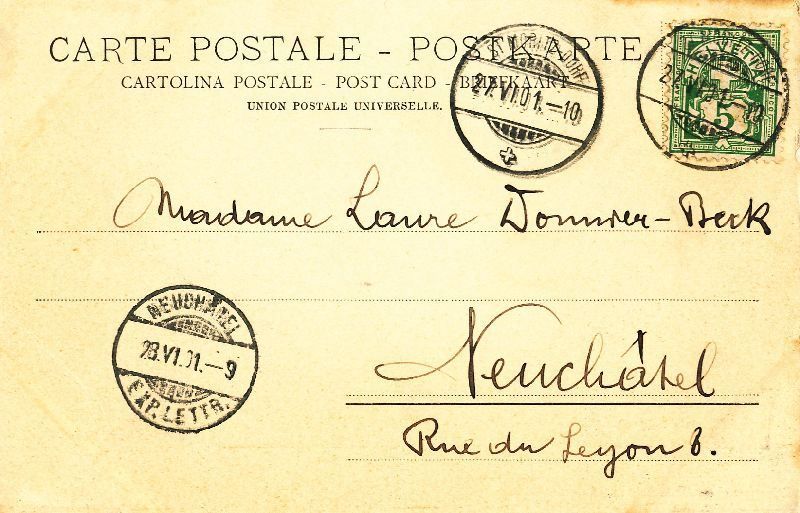 CARTE POSTALE - POSTKARTE
CARTOLINA POSTALE - POST CARD - BRIEFKAART
UNION POSTALE UNIVERSELLE.
27.VI.01.–10
HELVETIA
27.VI.01.–10
5
Madame Laure Donnier-Beck
NEUCHATEL
28.VI.01.–9
EXP. LETTR.
Neuchâtel
Rue du Seyon 6.